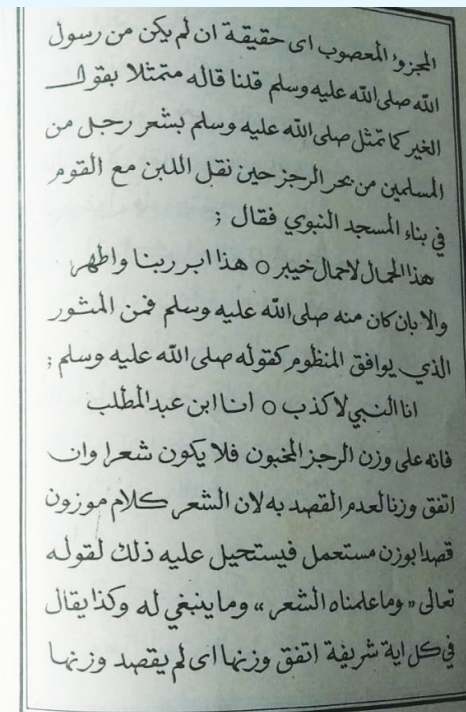 المجزوء المعصوب اى حقيقة ان لم يكن من رسول
الله صلى الله عليه وسلم قلنا قاله متمثلا بقول
الغير كما تمثل صلى الله عليه وسلم بشعر رجل من
المسلمين من بحر الرجز حين نقل اللبن مع القوم
في بناء المسجد النبوي فقال ;
هذا الحمال لاحمال خيبر ○ هذا ابر ربنا واطهر
والا بان كان منه صلى الله عليه وسلم فمن المنثور
الذي يوافق المنظوم كقوله صلى الله عليه وسلم ;
انا النبي لا كذب ○ انا ابن عبد المطلب
فانه على وزن الرجز المخبون فلا يكون شعرا وان
اتفق وزنا لعدم القصد به لان الشعر كلام موزون
قصدا بوزن مستعمل فيستحيل عليه ذلك لقوله
تعالى «وما علمناه الشعر» وما ينبغي له وكذا يقال
في كل اية شريفة اتفق وزنها اى لم يقصد وزنها